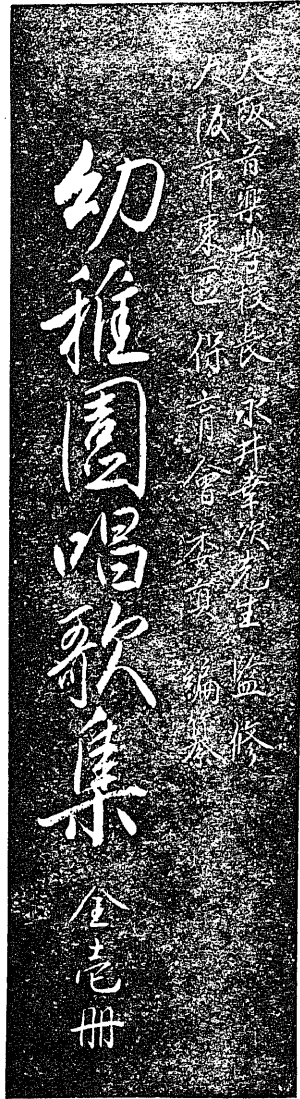 大阪音樂學校長 永井幸次先生 監修
大阪市東區保育會委員 編纂
幼稚園唱歌集 全壱冊